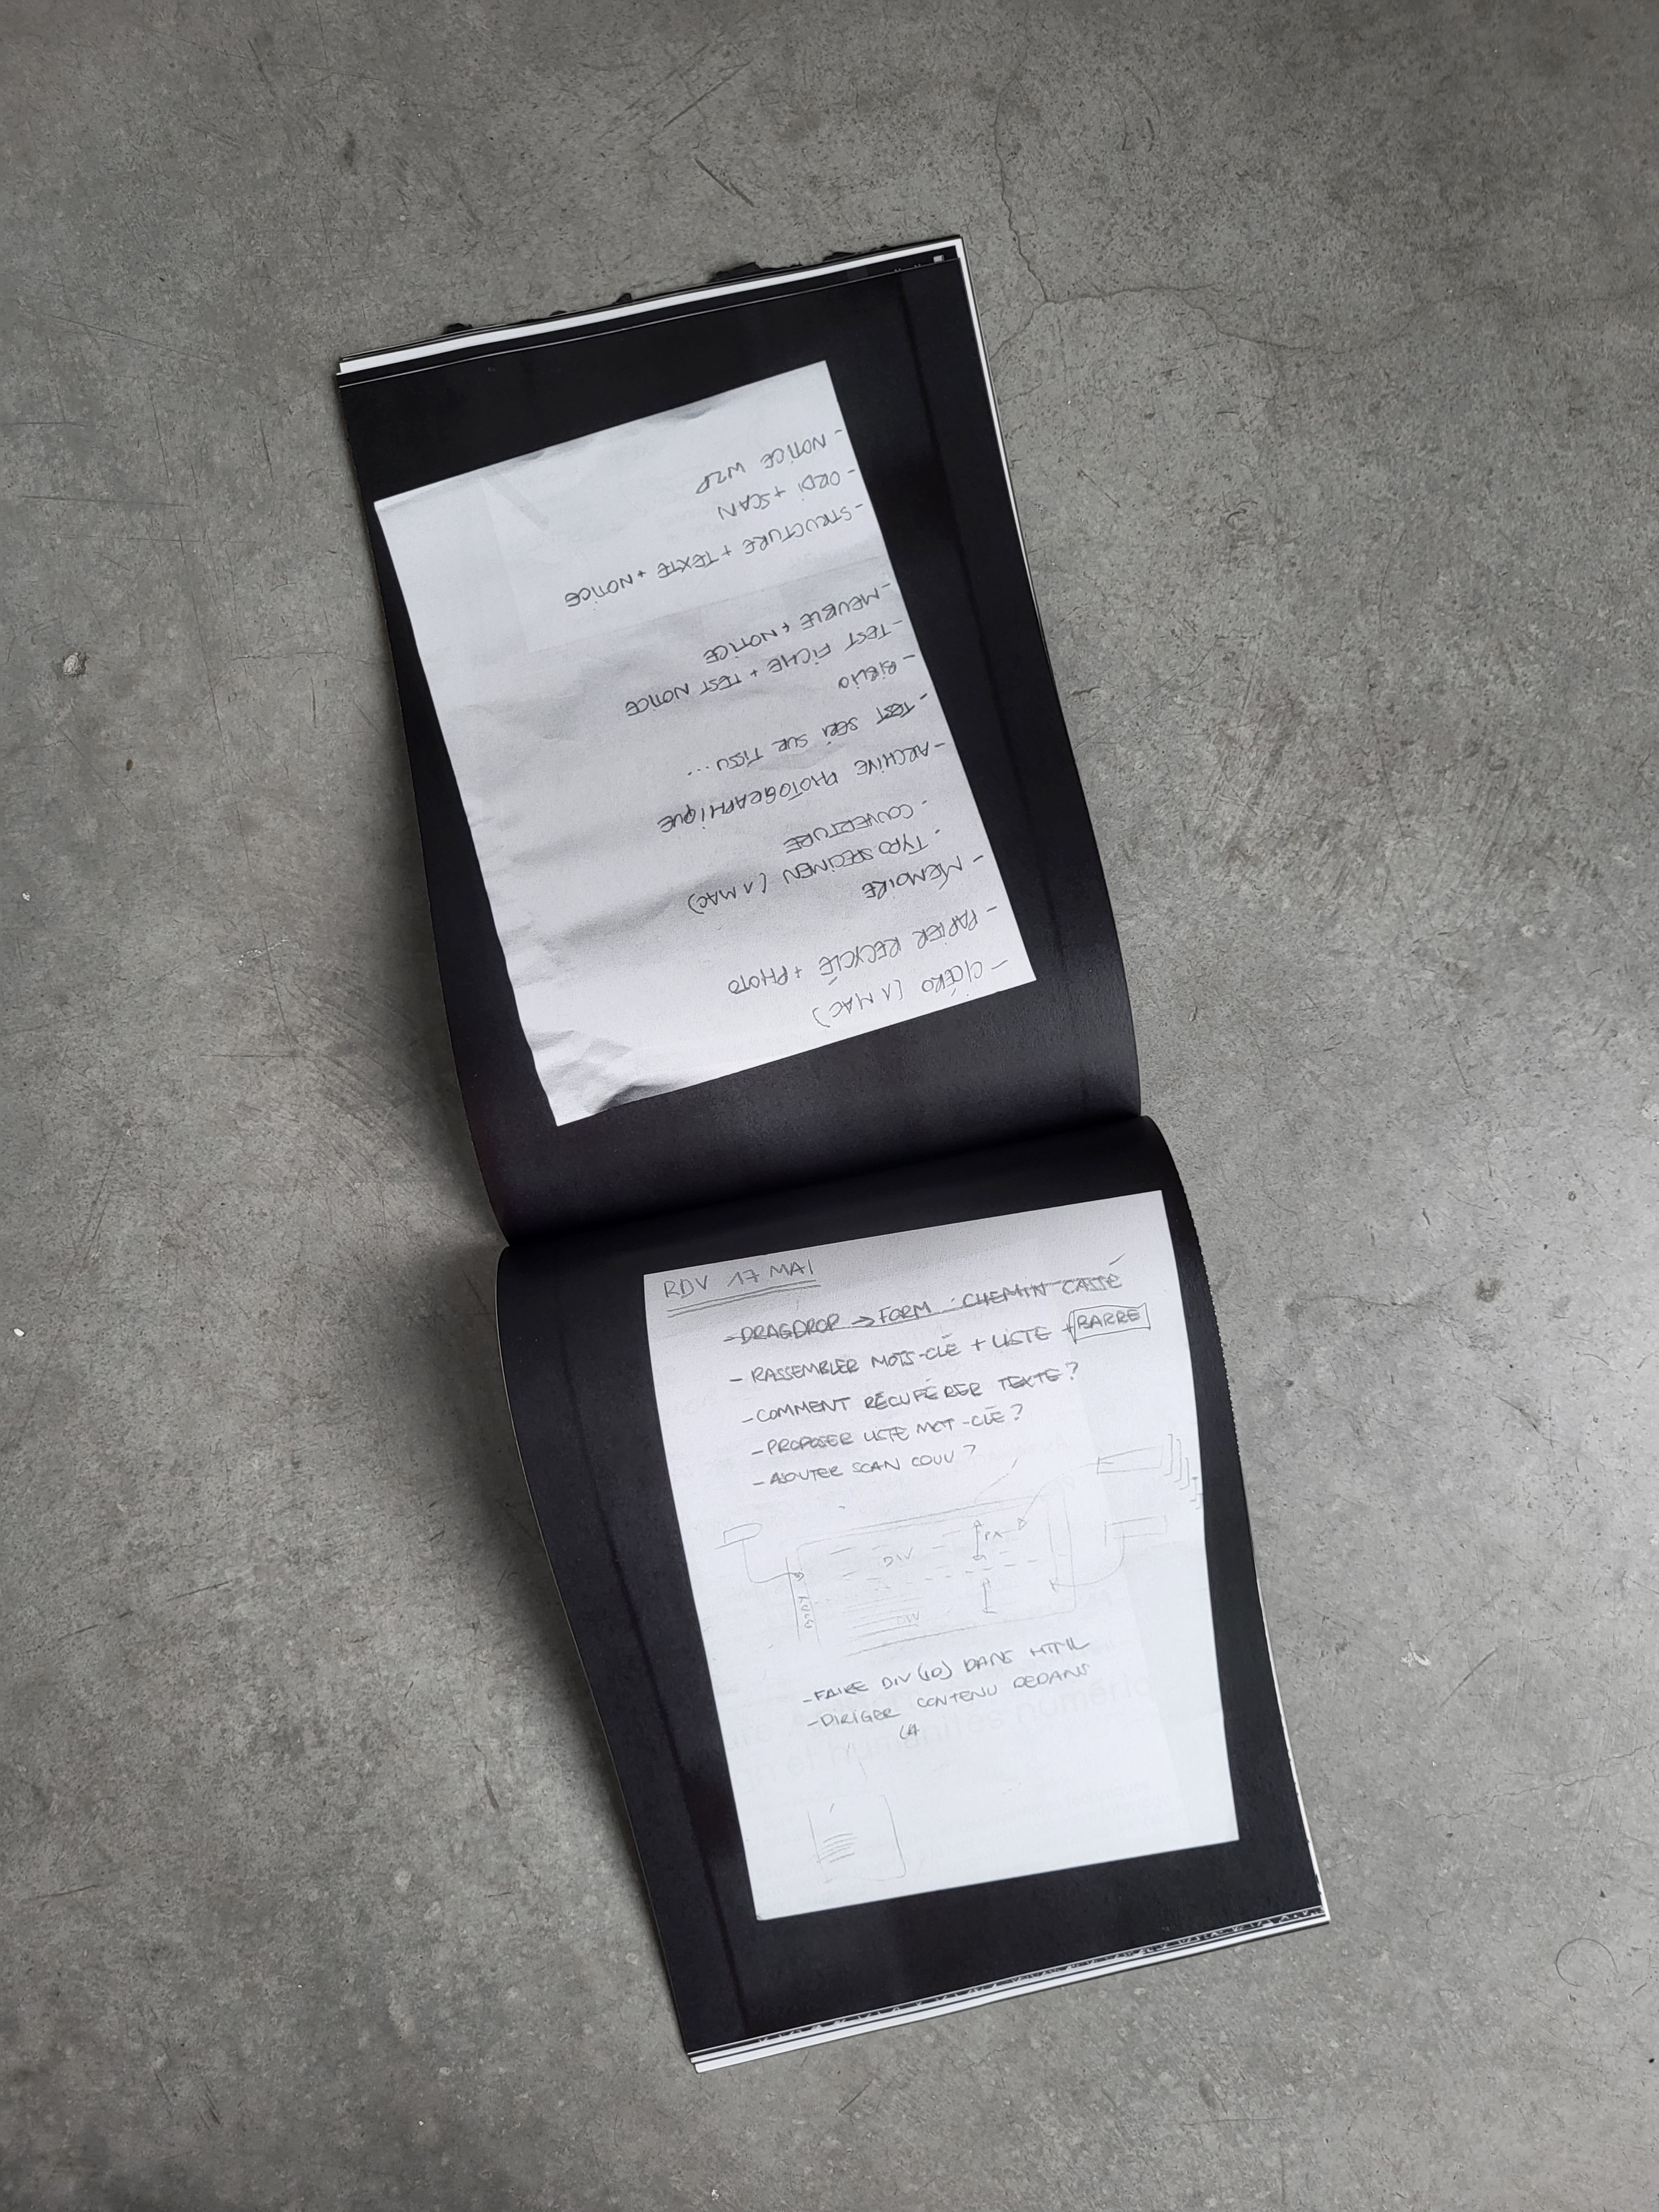 - CICÉRO (1 MAC)
- PAPIER RECYCLÉ + PHOTO
- MÉMOIRE
. TYPO SPECIMEN (1 MAC)
. COUVERTURE
- ARCHIVE PHOTOGRAPHIQUE
- TEST SÉRI SUR TISSU...
- BIBLIO
- TEST FICHE + TEST NOTICE
- MEUBLE + NOTICE
- STRUCTURE + TEXTE + NOTICE
- ORDI + SCAN
- NOTICE W2P
RDV 17 MAI
- DRAGDROP → FORM : CHEMIN CASSÉ
- RASSEMBLER MOTS-CLÉ + LISTE + BARRE
- COMMENT RÉCUPÉRER TEXTE ?
- PROPOSER LISTE MOT-CLÉ ?
- AJOUTER SCAN COUV ?
DIV
DIV
- FAIRE DIV (ID) DANS HTML
- DIRIGER CONTENU DEDANS